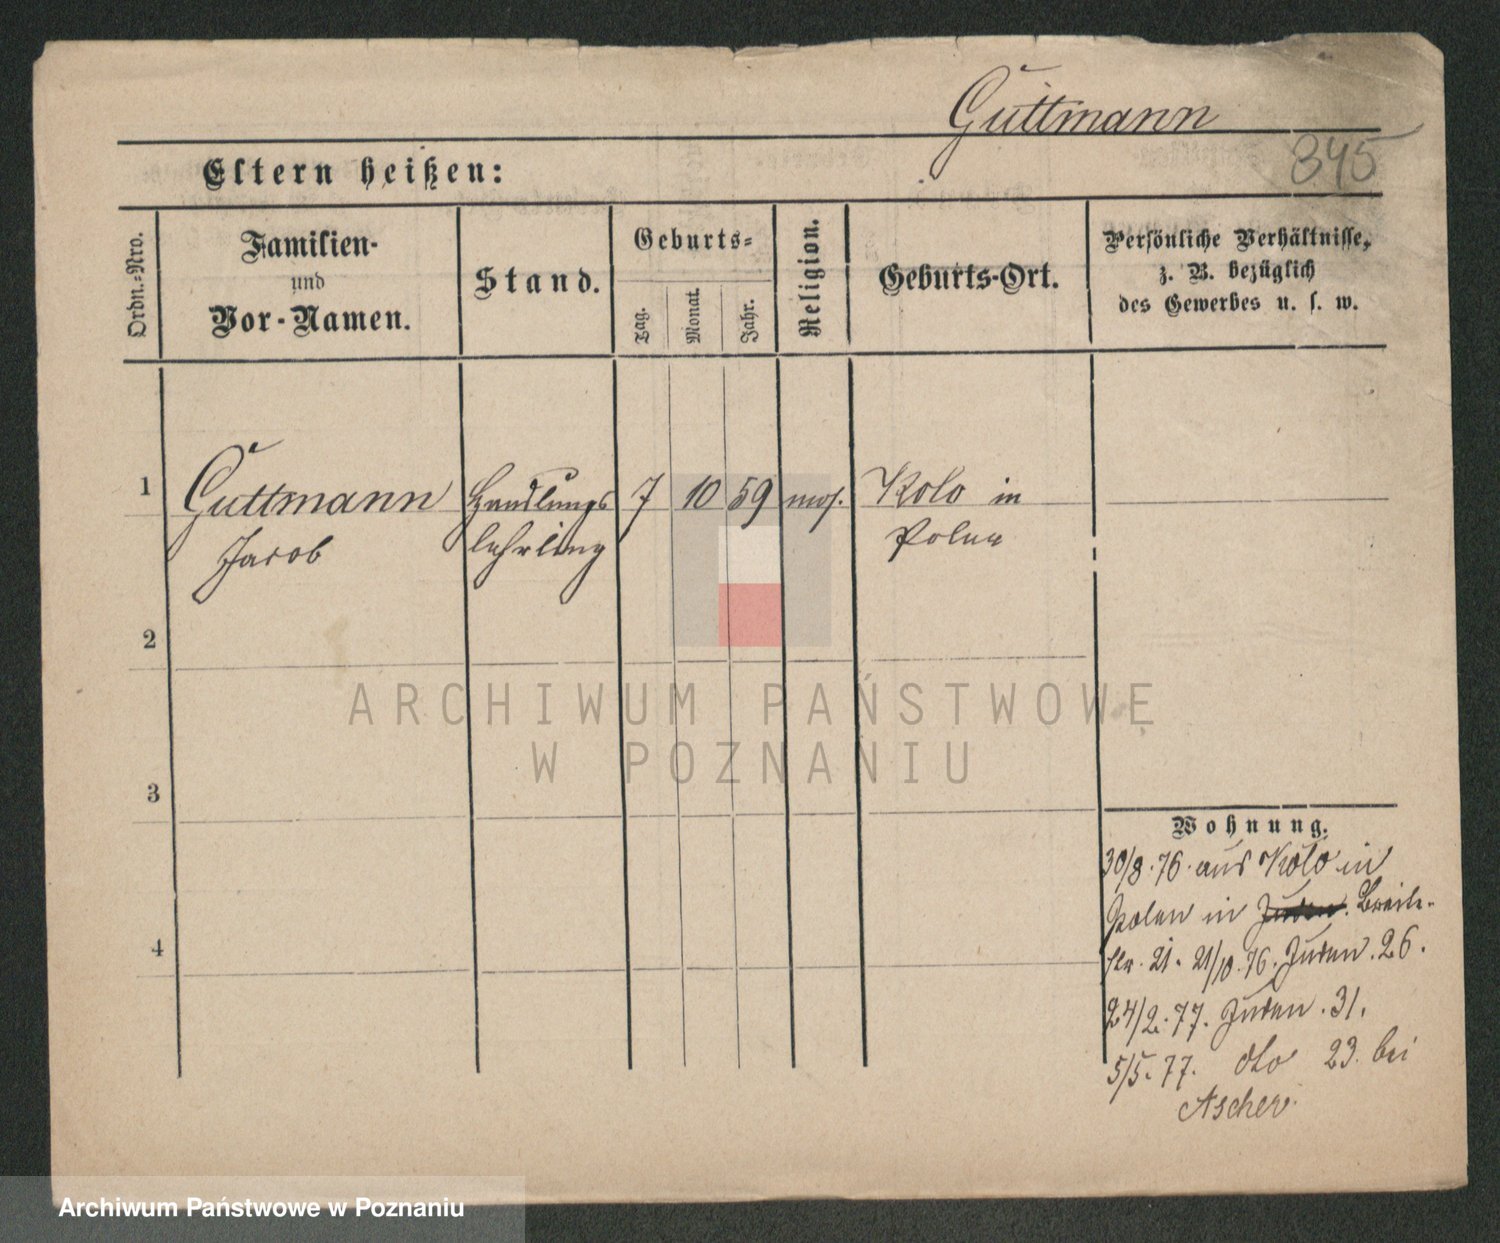 Guttmann
345
Eltern heißen:
Ordn.-Nro.
Familien-
und
Vor-Namen.
Stand.
Geburts-
Tag.
Monat.
Jahr.
Religion.
Geburts-Ort.
Persönliche Verhältnisse,
z. B. bezüglich
des Gewerbes u. s. w.
1 Guttmann Handlungs 7 10 59 mos. Kolo in
Jacob lehrling Polen
2
3
4
Wohnung.
30/8.76. aus Kolo in
Polen in Juden. Breite-
str. 21. 21/10.76. Juden. 26.
24/2.77. Juden. 31.
5/5.77. dto 23. bei
Ascher.
ARCHIWUM PAŃSTWOWE
W POZNANIU
Archiwum Państwowe w Poznaniu